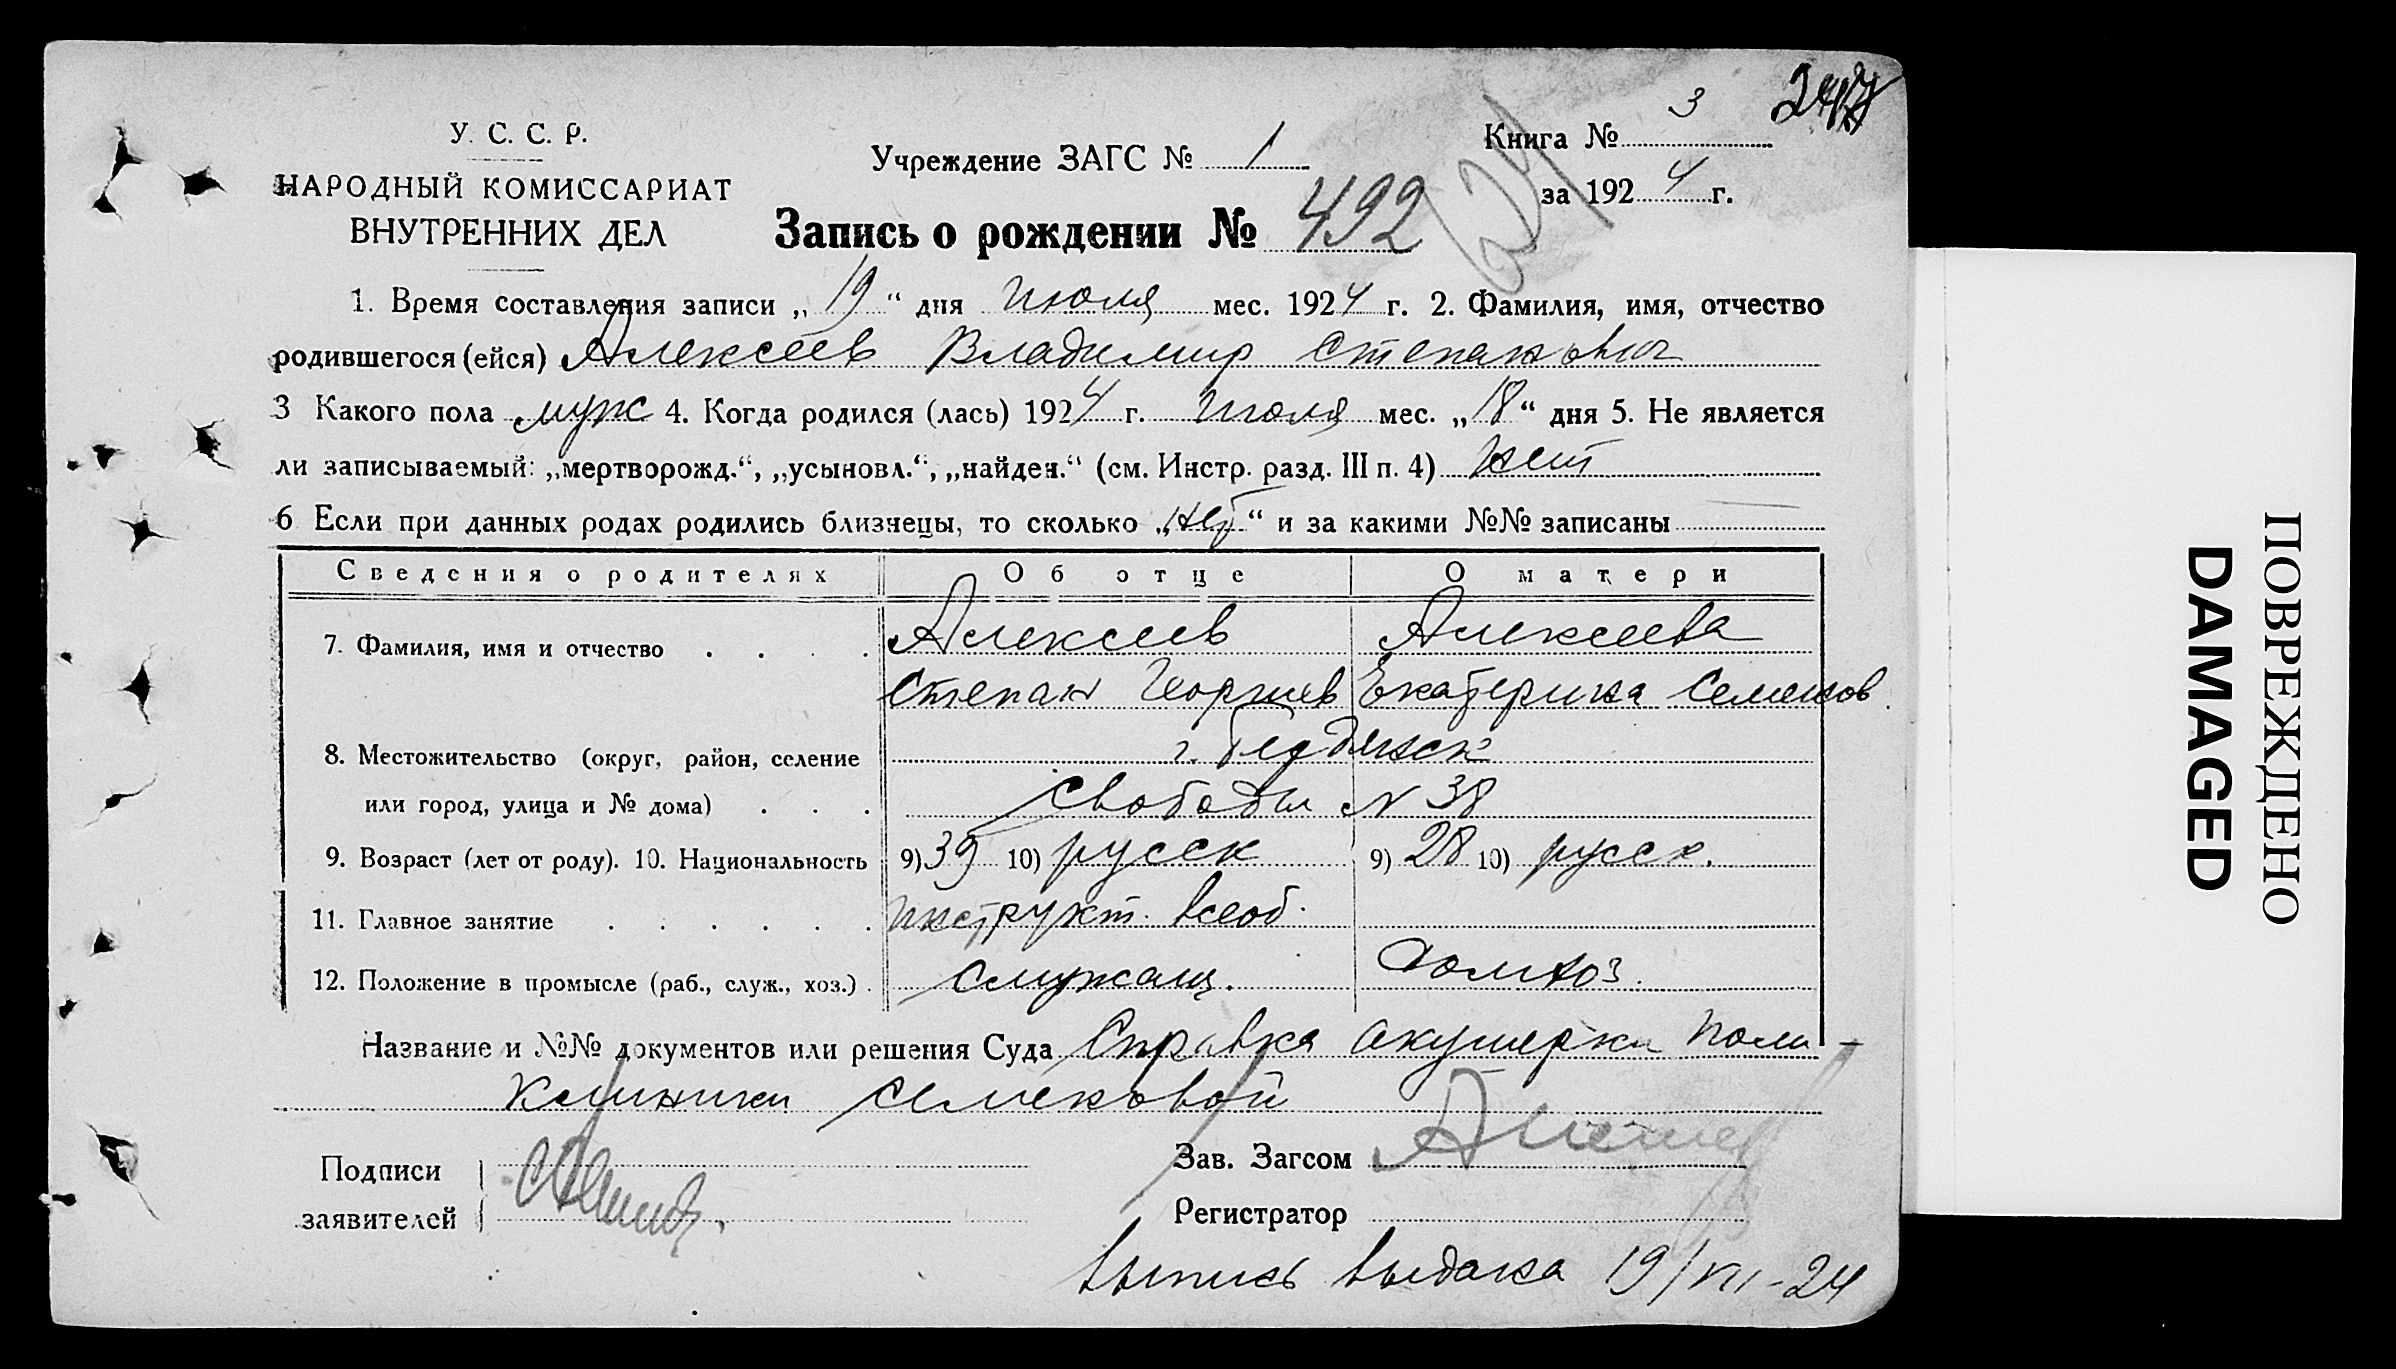 247
У. С. С. Р.
НАРОДНЫЙ КОМИССАРИАТ
ВНУТРЕННИХ ДЕЛ
Учреждение ЗАГС № 1
Книга № 3
за 1924 г.
624
Запись о рождении № 492
1. Время составления записи „19“ дня июля мес. 1924 г. 2. Фамилия, имя, отчество
родившегося (ейся) Алексеев Владимир Степанович
3 Какого пола муж 4. Когда родился (лась) 1924 г. июля мес. „18“ дня 5. Не является
ли записываемый: „мертворожд.“, „усыновл.“, „найден.“ (см. Инстр. разд. III п. 4) нет
6 Если при данных родах родились близнецы, то сколько „нет“ и за какими №№ записаны —
Сведения о родителях Об отце О матери
7. Фамилия, имя и отчество . . . . Алексеев Алексеева
Степан Георгиев Екатерина Семенов.
8. Местожительство (округ, район, селение г. Бердянск
или город, улица и № дома) . . . Свободы N 38
9. Возраст (лет от роду). 10. Национальность 9) 39 10) русск 9) 28 10) русск.
11. Главное занятие . . . . . . инструкт. всеоб.
12. Положение в промысле (раб., служ., хоз.) . служащ. домхоз.
Название и №№ документов или решения Суда Справка акушерки поли-
клиники Семеновой
Подписи
заявителей
Зав. Загсом
Регистратор
выпись выдана 19/VII-24
ПОВРЕЖДЕНО
DAMAGED